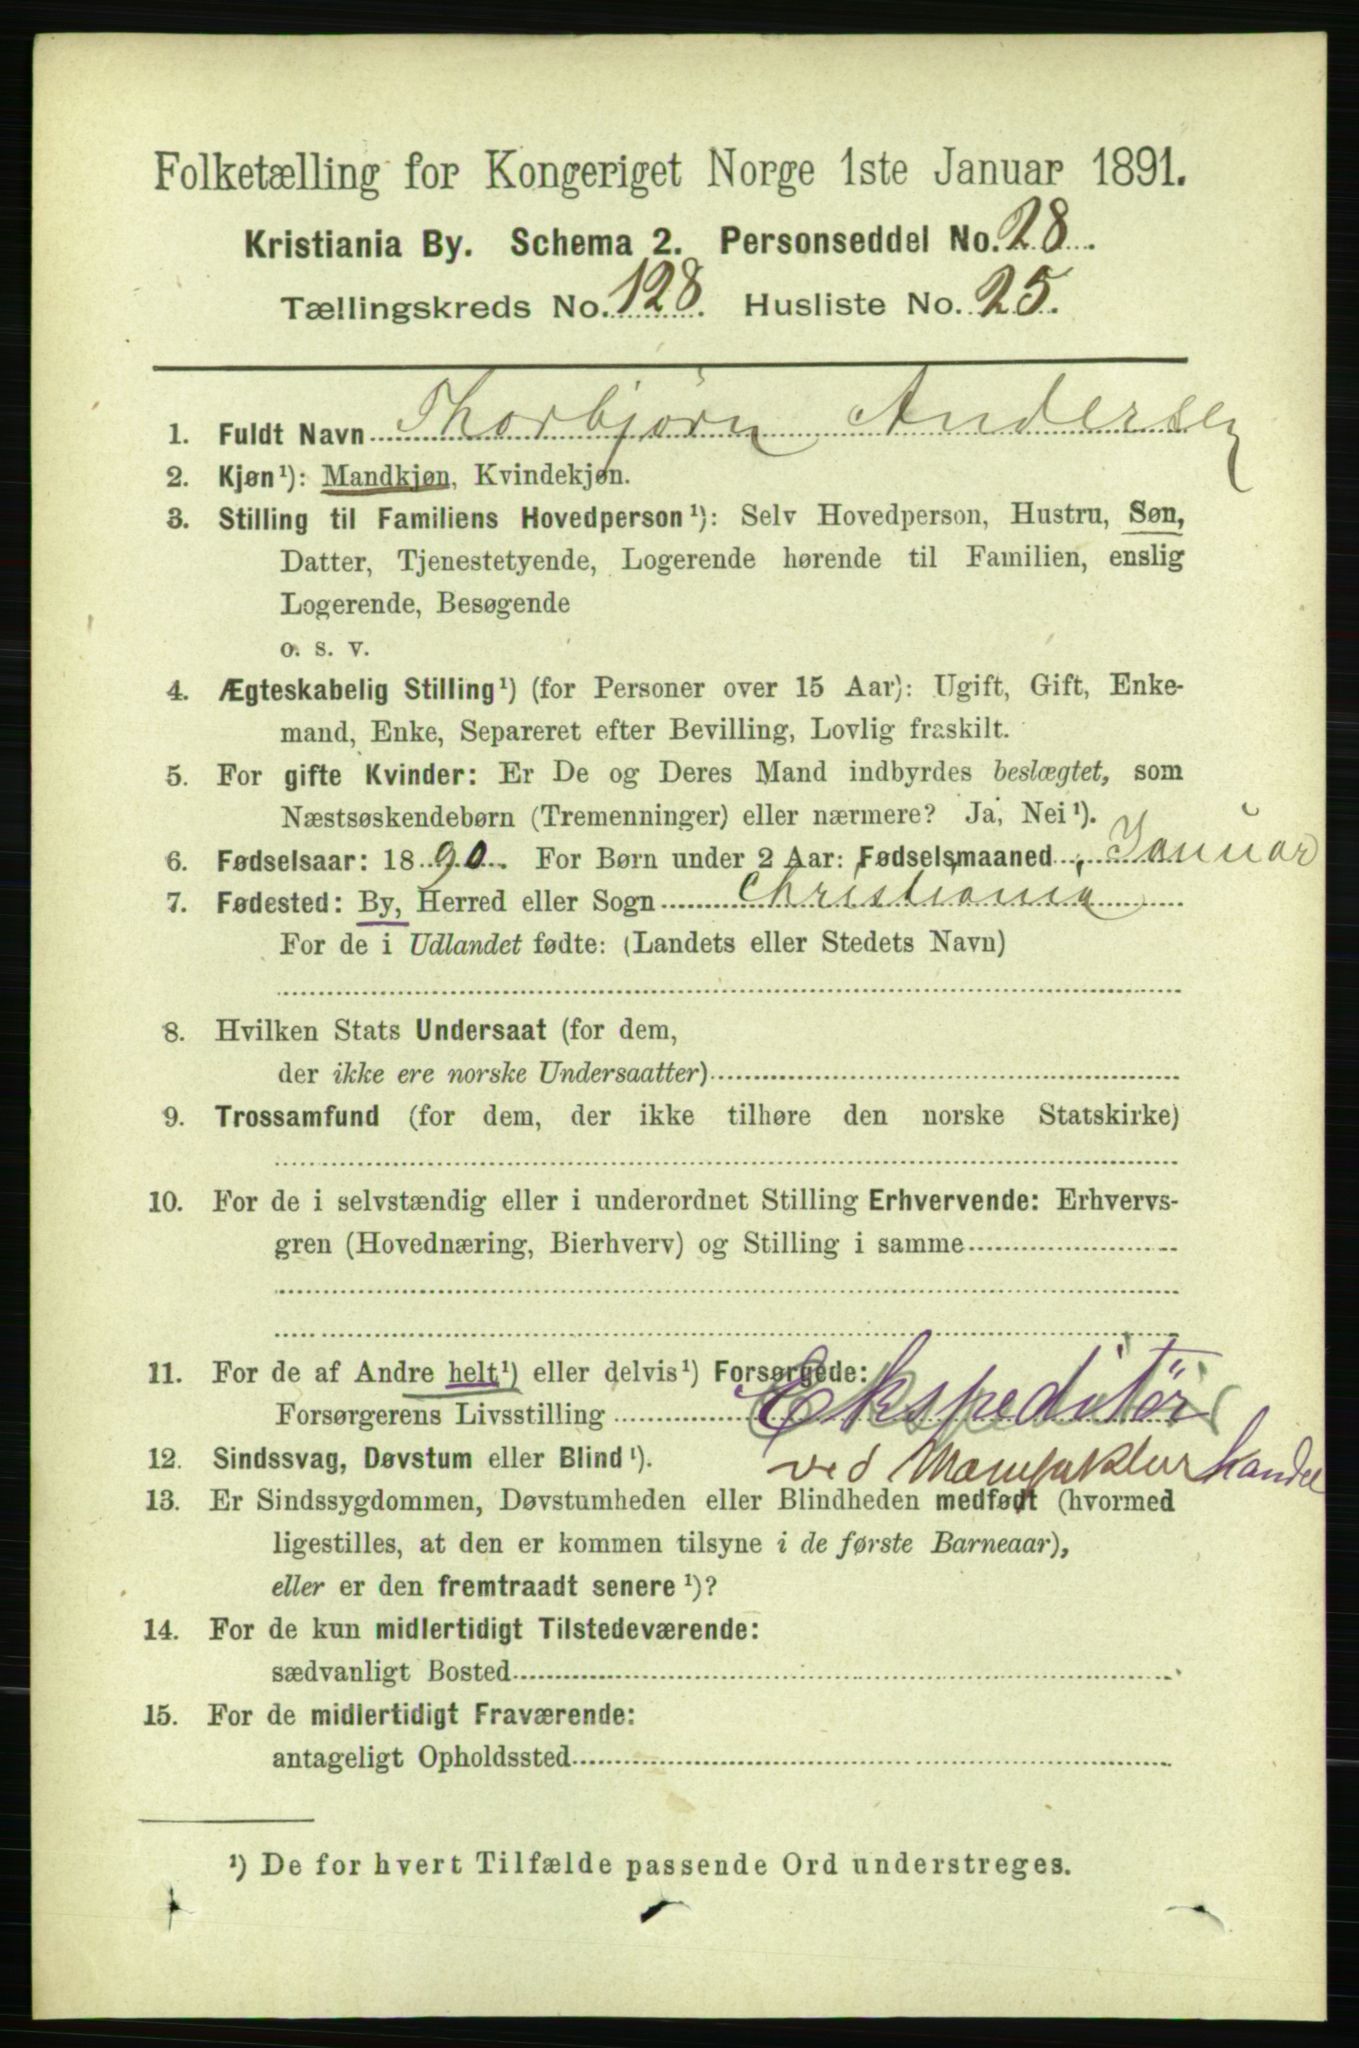 Folketælling for Kongeriget Norge 1ste Januar 1891.
Kristiania By. Schema 2. Personseddel No. 28.
Tællingskreds No. 128. Husliste No. 25.
1. Fuldt Navn Thorbjørn Andersen
2. Kjøn¹): Mandkjøn, Kvindekjøn.
3. Stilling til Familiens Hovedperson¹): Selv Hovedperson, Hustru, Søn,
Datter, Tjenestetyende, Logerende hørende til Familien, enslig
Logerende, Besøgende
o. s. v.
4. Ægteskabelig Stilling¹) (for Personer over 15 Aar): Ugift, Gift, Enke-
mand, Enke, Separeret efter Bevilling, Lovlig fraskilt.
5. For gifte Kvinder: Er De og Deres Mand indbyrdes beslægtet, som
Næstsøskendebørn (Tremenninger) eller nærmere? Ja, Nei¹).
6. Fødselsaar: 1890. For Børn under 2 Aar: Fødselsmaaned Januar
7. Fødested: By, Herred eller Sogn Christiania
For de i Udlandet fødte: (Landets eller Stedets Navn)
8. Hvilken Stats Undersaat (for dem,
der ikke ere norske Undersaatter)
9. Trossamfund (for dem, der ikke tilhøre den norske Statskirke)
10. For de i selvstændig eller i underordnet Stilling Erhvervende: Erhvervs-
gren (Hovednæring, Bierhverv) og Stilling i samme
11. For de af Andre helt¹) eller delvis¹) Forsørgede:
Forsørgerens Livsstilling Ekspeditör
ved Manufakturhandel
12. Sindssvag, Døvstum eller Blind¹).
13. Er Sindssygdommen, Døvstumheden eller Blindheden medfødt (hvormed
ligestilles, at den er kommen tilsyne i de første Barneaar),
eller er den fremtraadt senere¹)?
14. For de kun midlertidigt Tilstedeværende:
sædvanligt Bosted
15. For de midlertidigt Fraværende:
antageligt Opholdssted
¹) De for hvert Tilfælde passende Ord understreges.